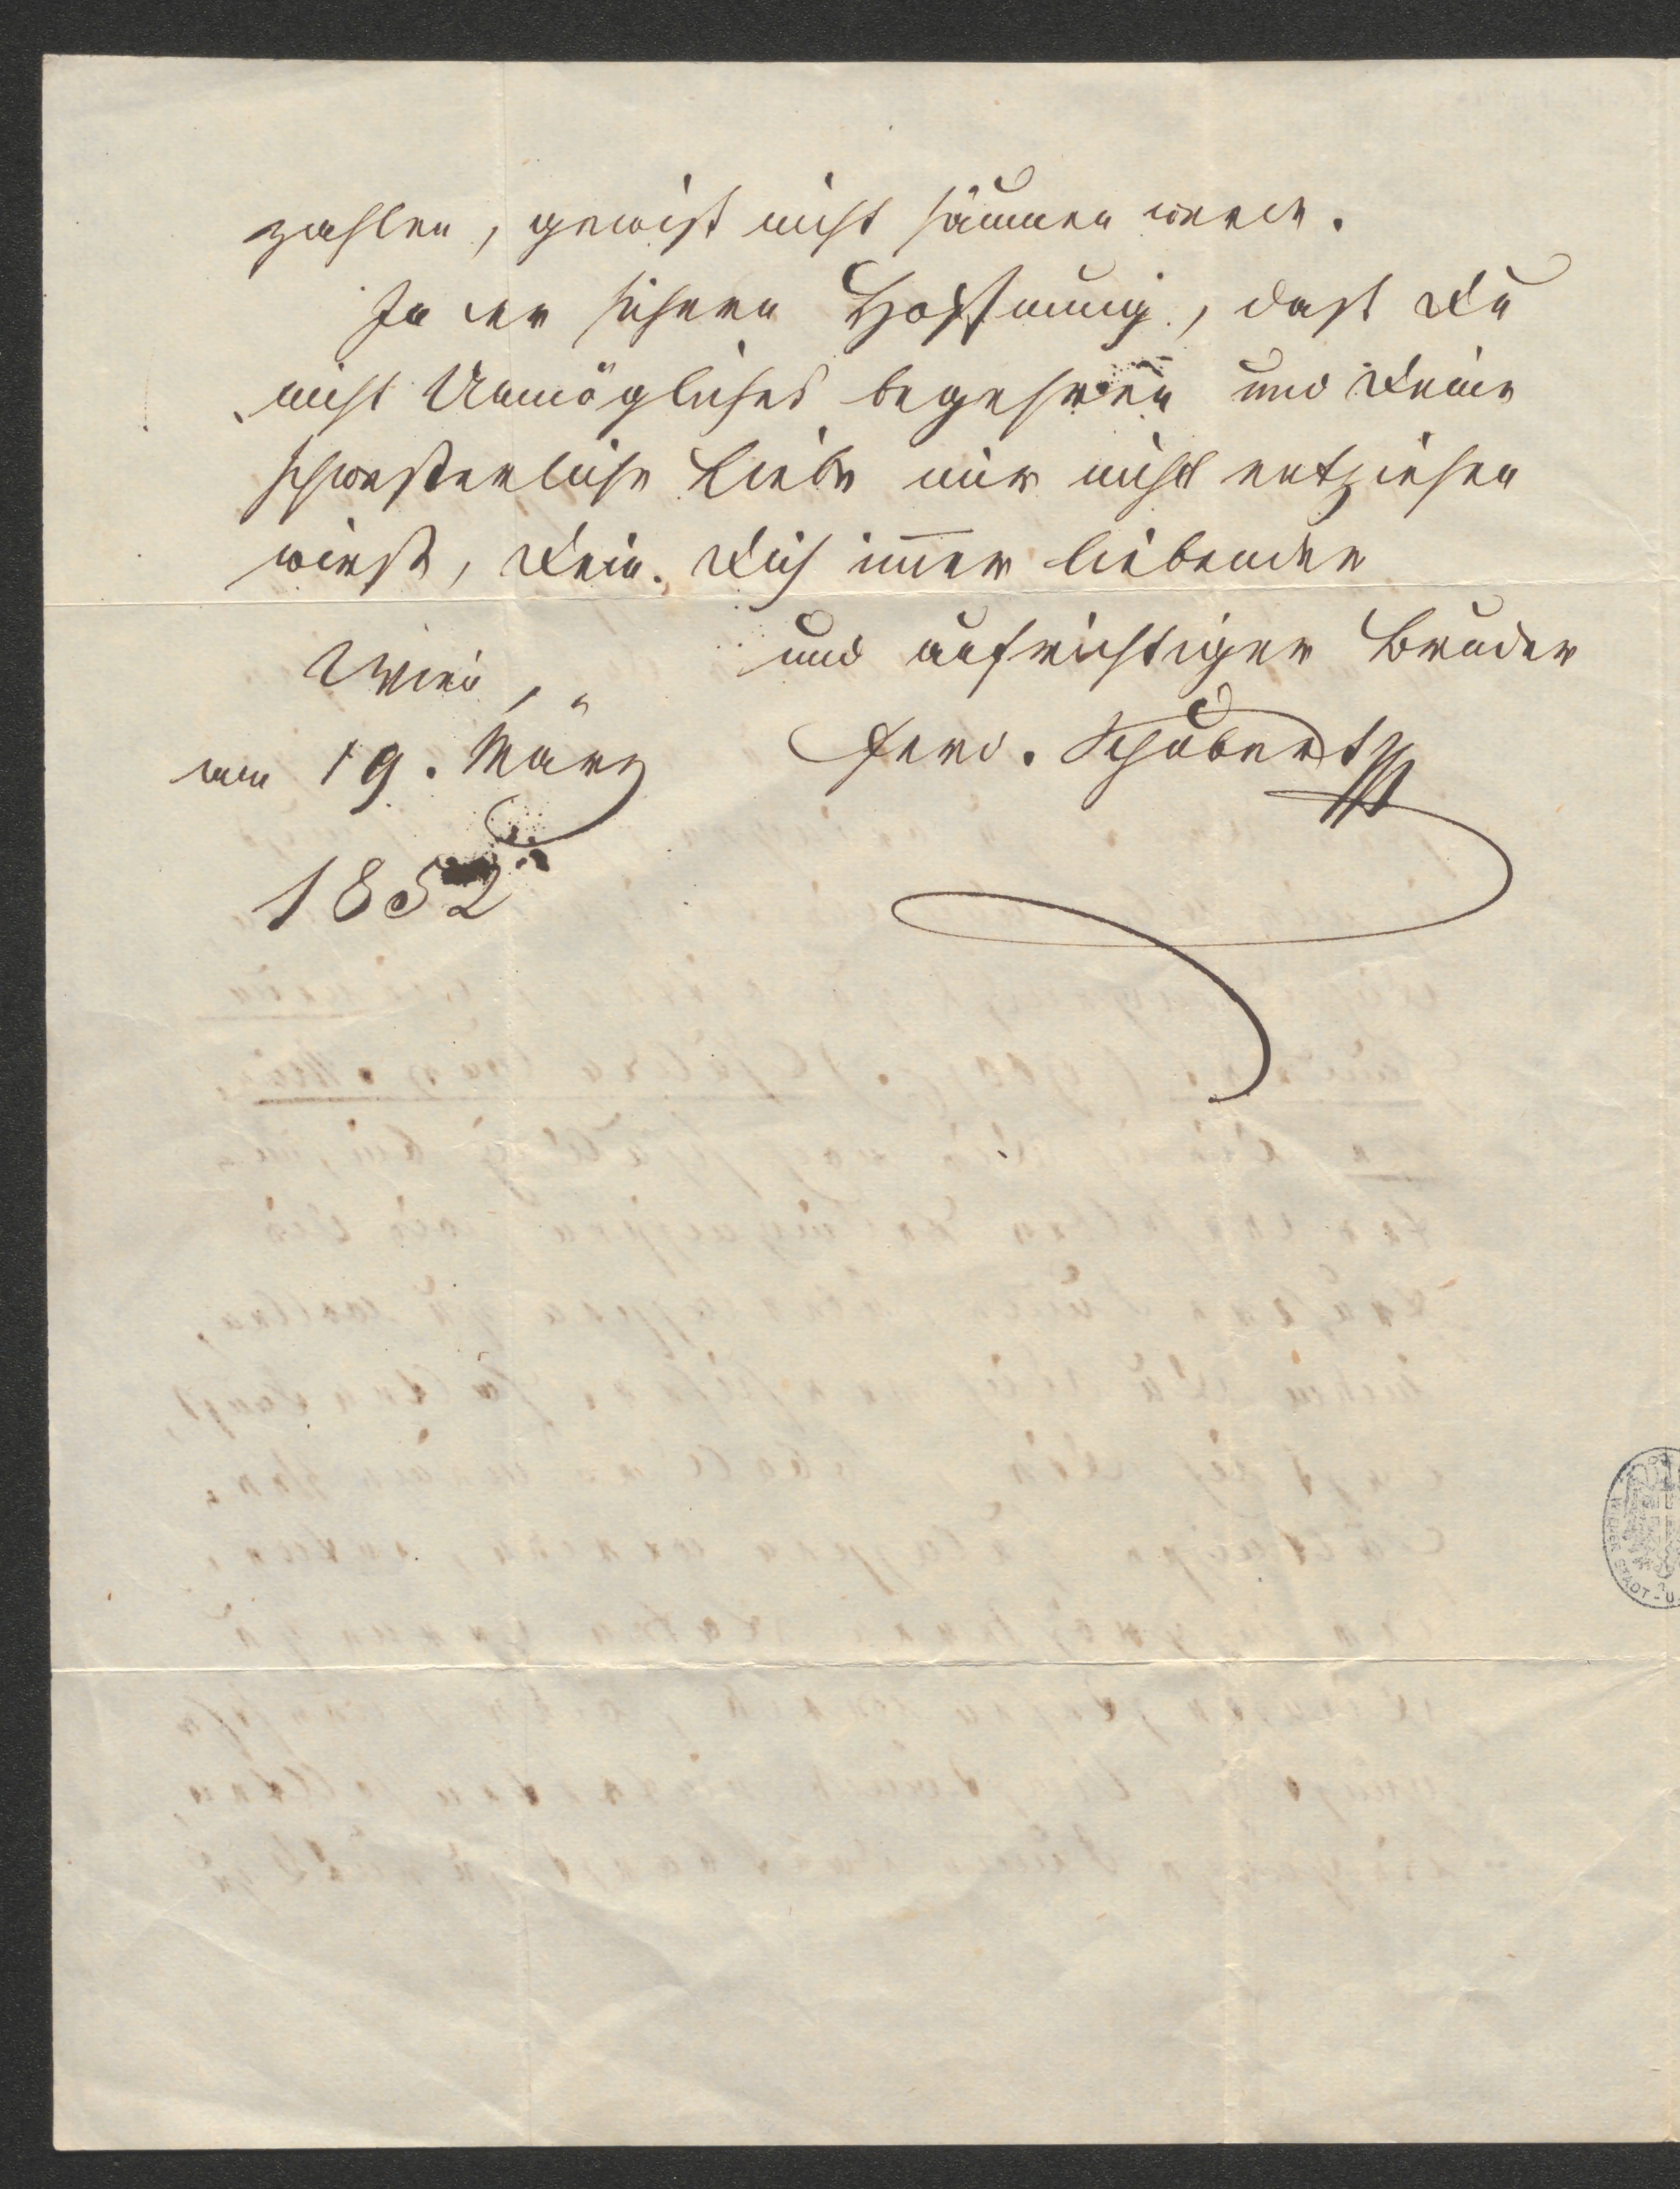 zahlen, gewiß nicht säumen werde.
In der sichern Hoffnung, daß Du
nicht Unmögliches begehren und Deine
schwesterliche Liebe mir nicht entziehen
wirst, Dein Dich im̄er liebender
und aufrichtiger Bruder
Wien,
am 19. März
Ferd. Schubert
1852